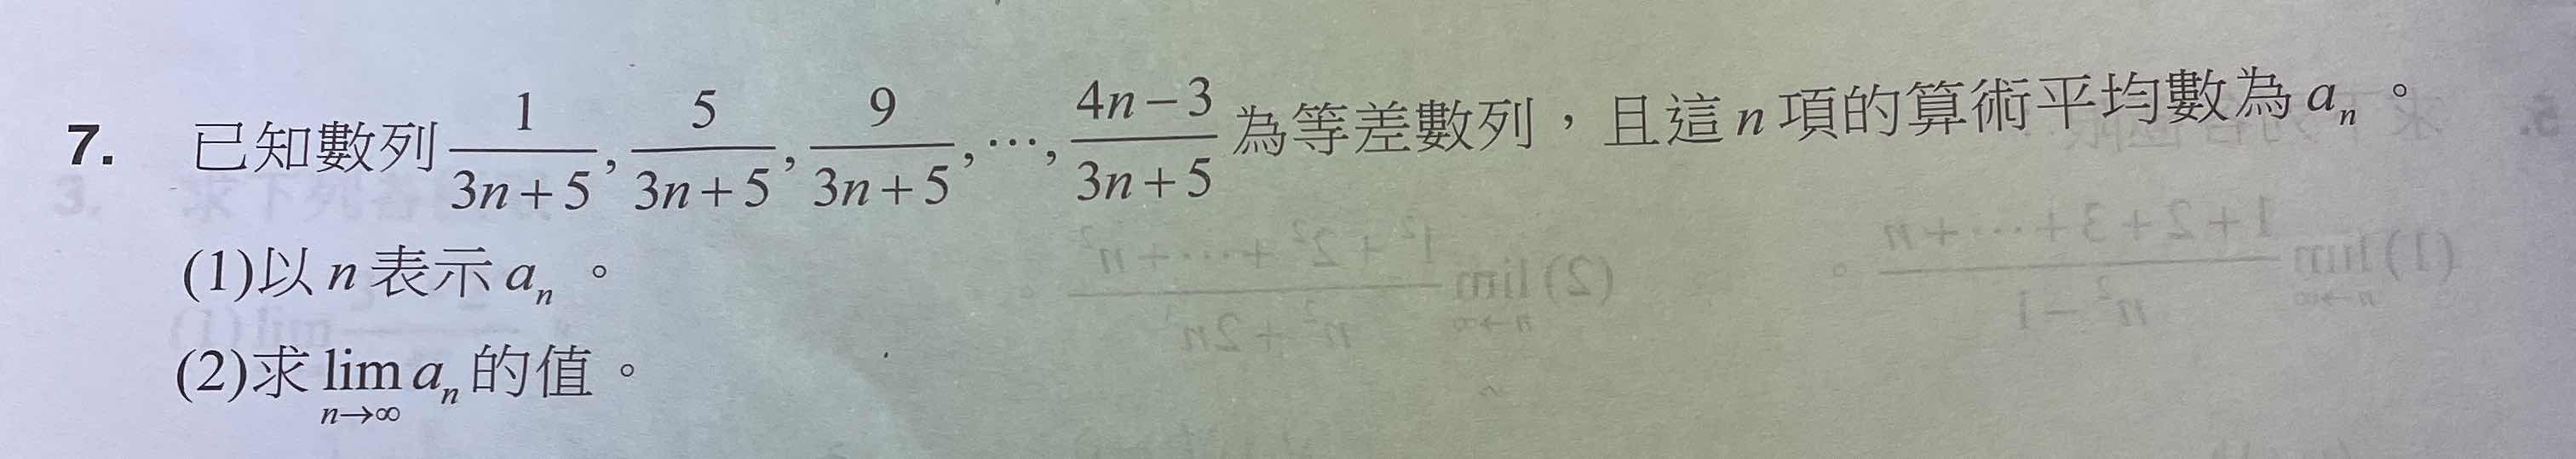 7. 已知數列 1/(3n+5), 5/(3n+5), 9/(3n+5), ⋯, (4n−3)/(3n+5) 為等差數列，且這 n 項的算術平均數為 aₙ。
(1)以 n 表示 aₙ。
(2)求 lim_{n→∞} aₙ 的值。